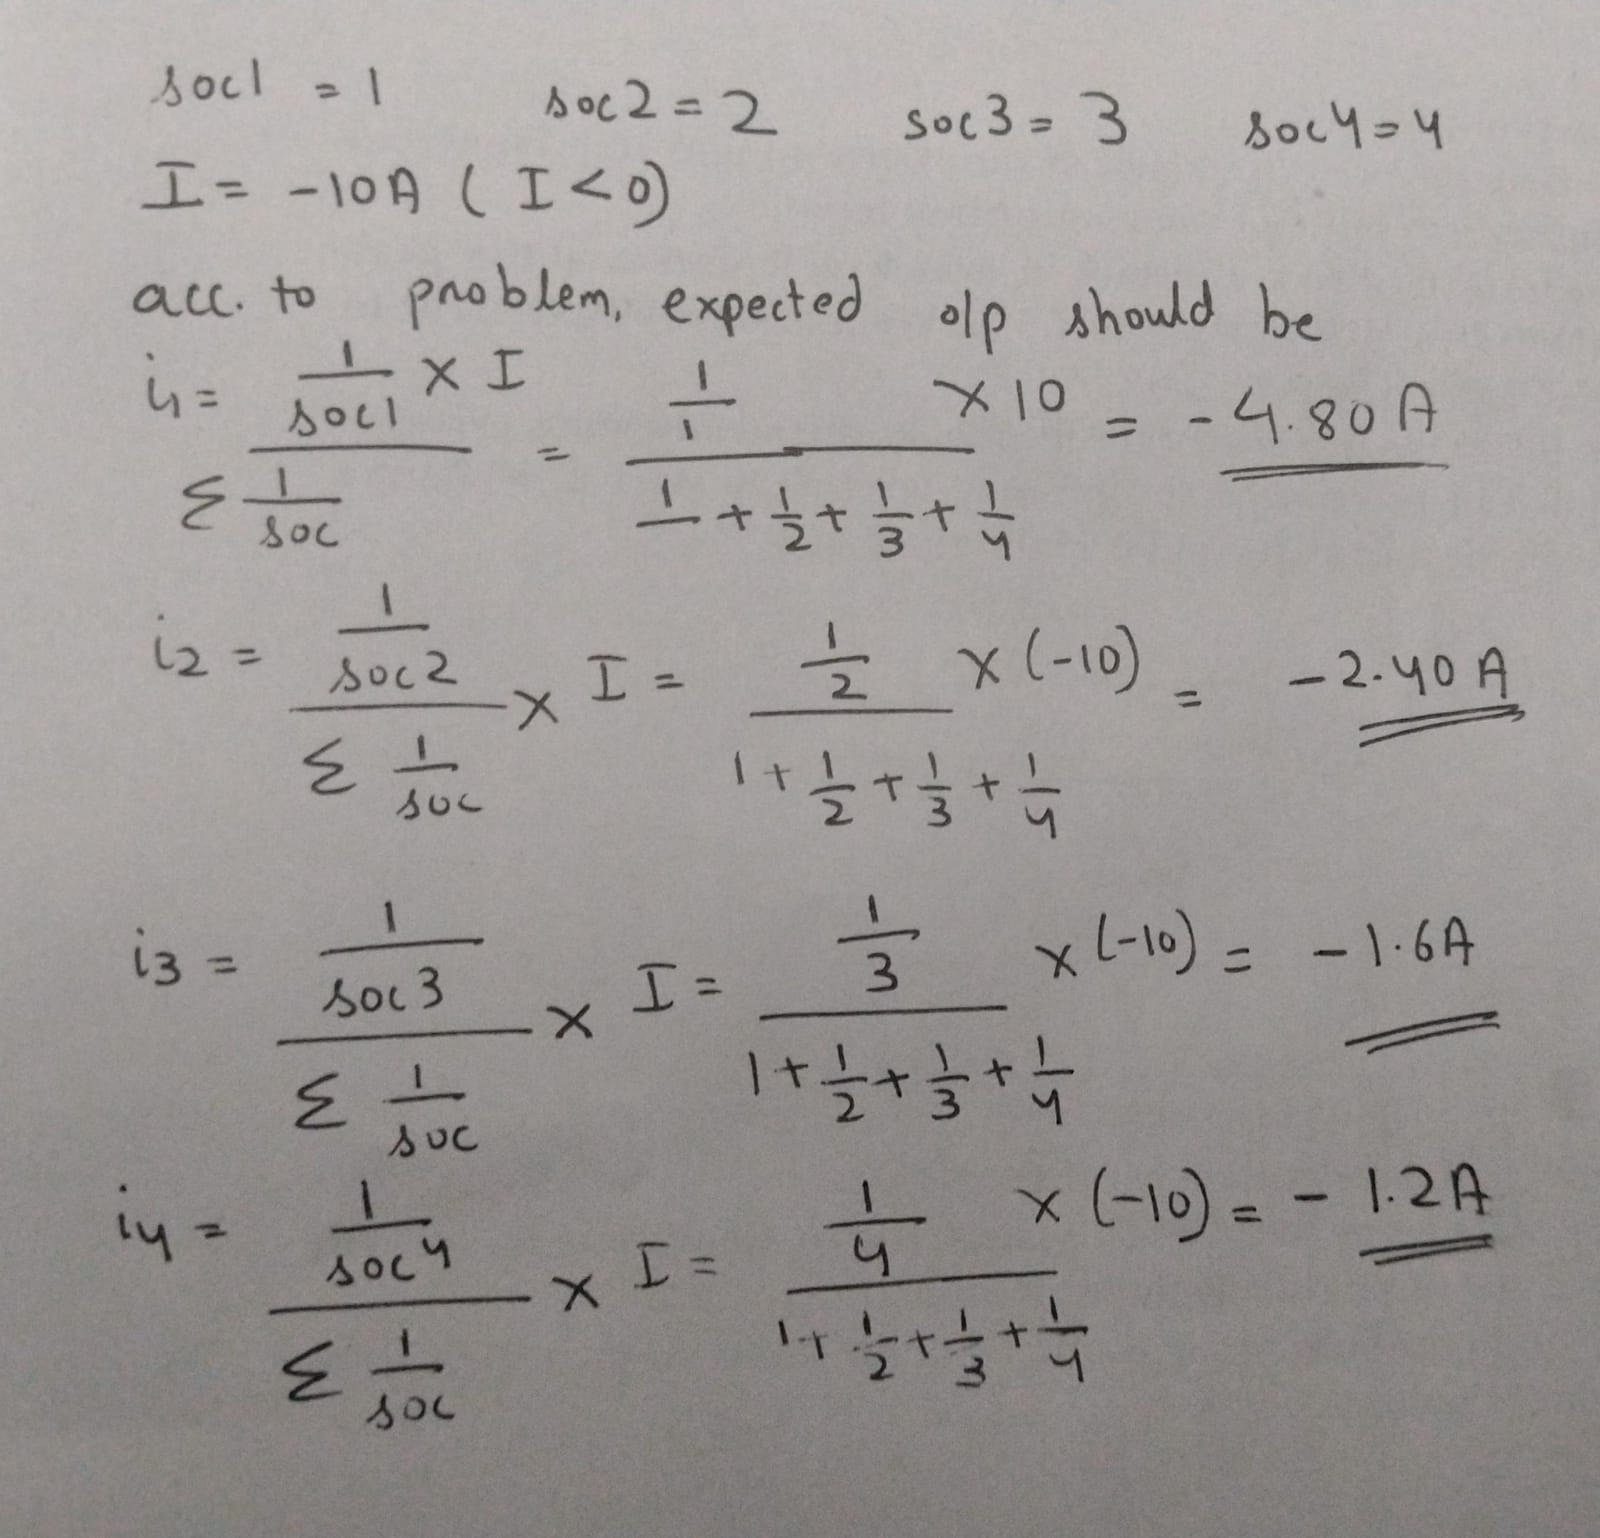 soc1 = 1 soc2 = 2 soc3 = 3 soc4 = 4
I = -10A ( I < 0)
acc. to problem, expected o/p should be
i1 = 1/soc1 × I / Σ 1/soc = 1/1 × 10 / 1 + 1/2 + 1/3 + 1/4 = - 4.80 A
i2 = 1/soc2 / Σ 1/soc × I = 1/2 × (-10) / 1 + 1/2 + 1/3 + 1/4 = - 2.40 A
i3 = 1/soc3 / Σ 1/soc × I = 1/3 × (-10) / 1 + 1/2 + 1/3 + 1/4 = - 1.6A
i4 = 1/soc4 / Σ 1/soc × I = 1/4 × (-10) / 1 + 1/2 + 1/3 + 1/4 = - 1.2A